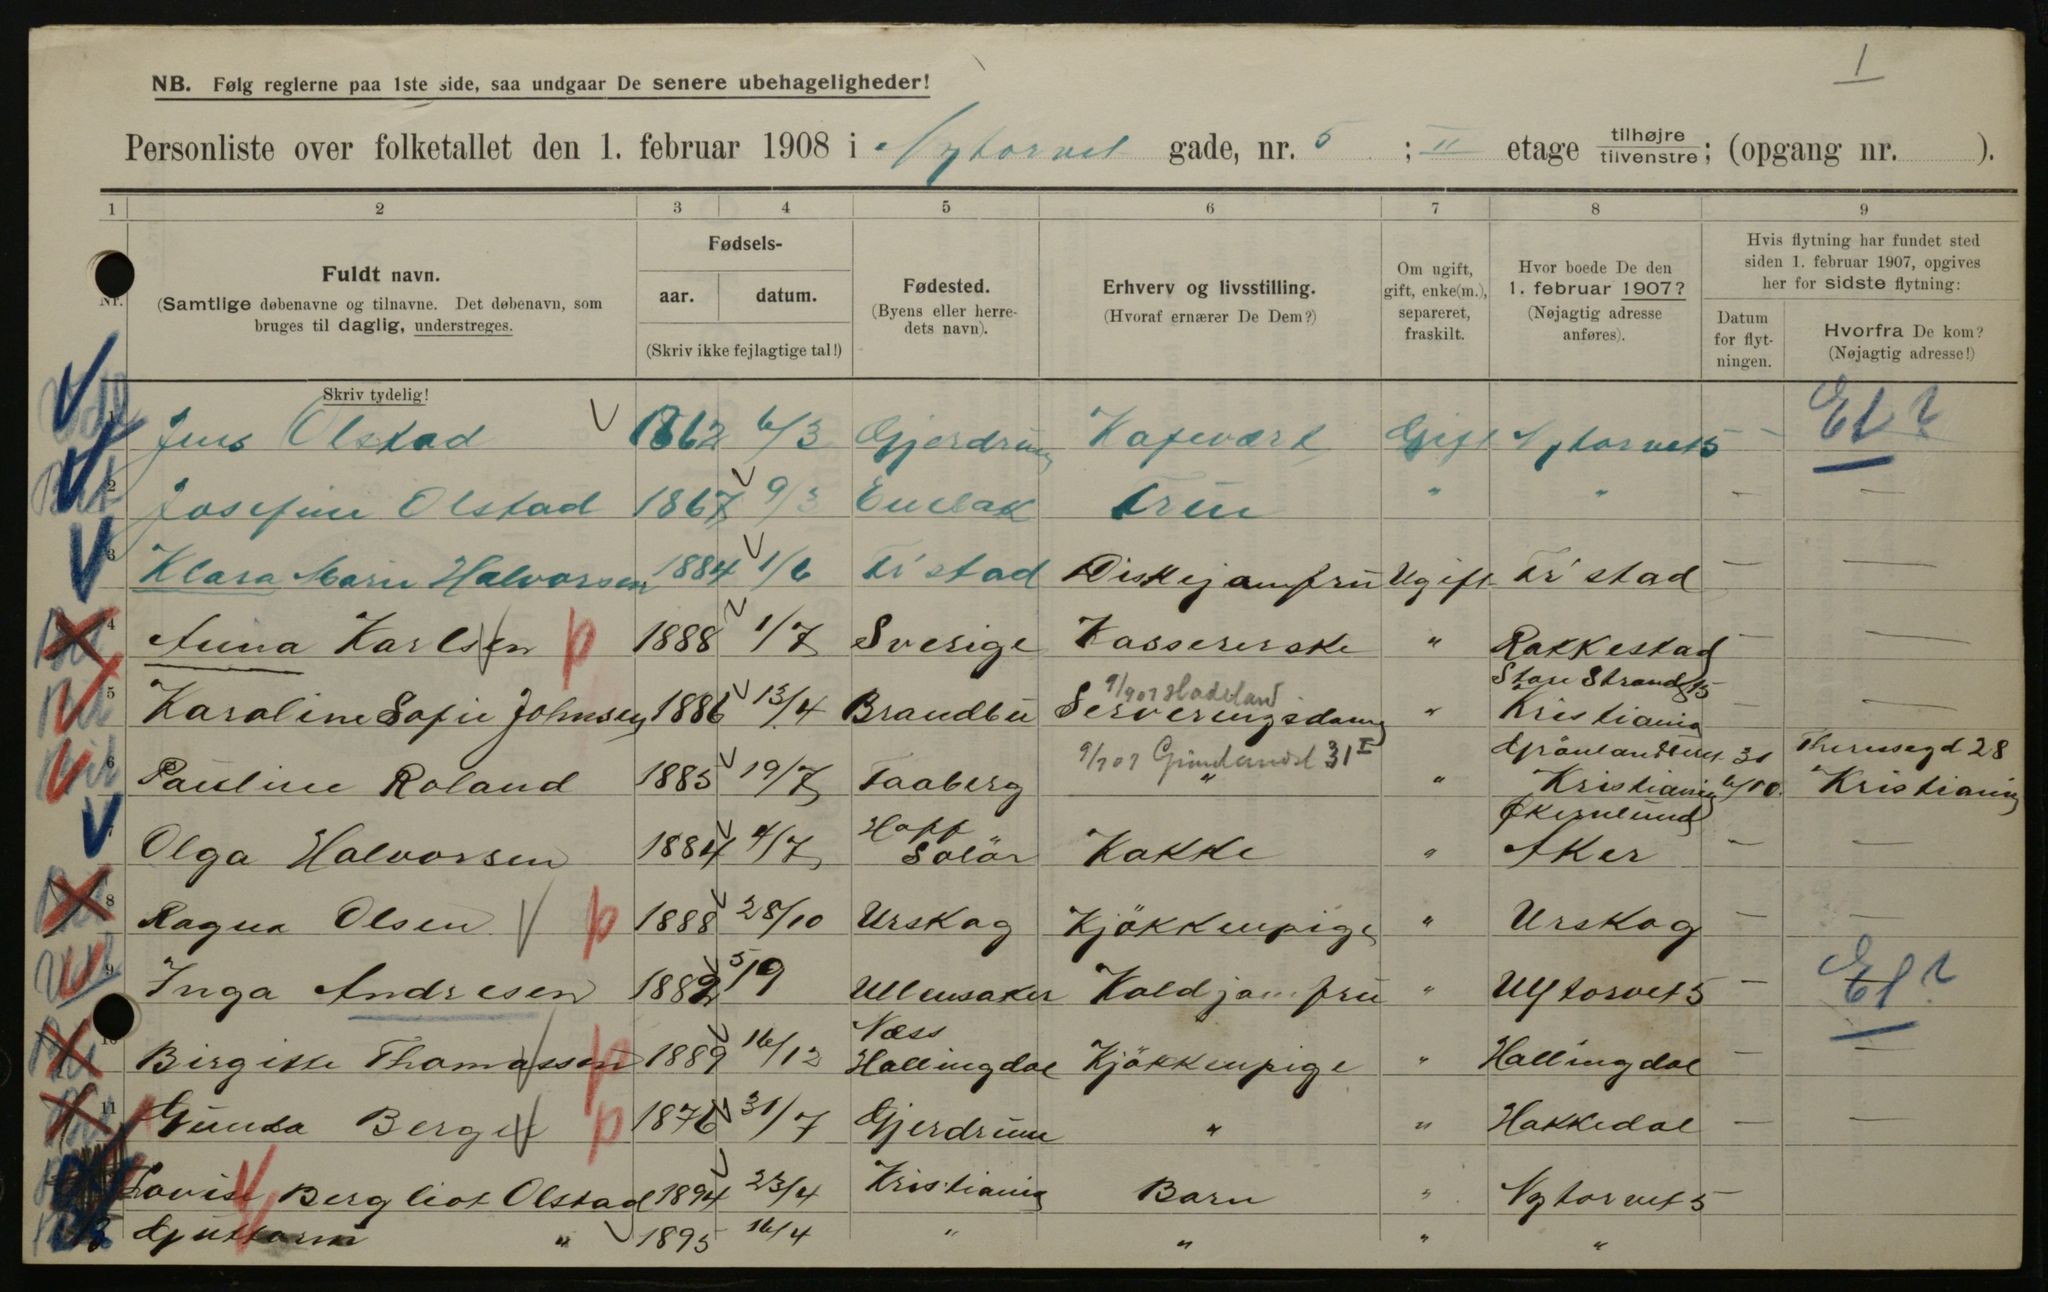 1
NB. Følg reglerne paa 1ste side, saa undgaar De senere ubehageligheder!
Personliste over folketallet den 1. februar 1908 i Nytorvet gade, nr. 5 ; II etage tilhøjre tilvenstre ; (opgang nr. ).
1 2 3 4 5 6 7 8 9
Nr.
Fuldt navn.
(Samtlige døbenavne og tilnavne. Det døbenavn, som
bruges til daglig, understreges.
Skriv tydelig!
Fødsels-
aar. datum.
(Skriv ikke fejlagtige tal!)
Fødested.
(Byens eller herre-
dets navn).
Erhverv og livsstilling.
(Hvoraf ernærer De Dem?)
Om ugift,
gift, enke(m.),
separeret,
fraskilt.
Hvor boede De den
1. februar 1907?
(Nøjagtig adresse
anføres).
Hvis flytning har fundet sted
siden 1. februar 1907, opgives
her for sidste flytning:
Datum
for flyt-
ningen.
Hvorfra De kom?
(Nøjagtig adresse!)
1 Jens Olstad 1862 6/3 Gjerdrum Kafevært Gift Nytorvet 5 — Et?
2 Josefine Olstad 1867 9/3 Eidsak Frue " " — —
3 Klara Marie Halvorsen 1884 1/6 Fr'stad Diskejomfru Ugift Fr'stad — —
4 Anna Karlsen p 1888 1/7 Sverige Kassererske " Rakkestad — —
9/907 Hadeland Store Strandg 15
5 Karoline Sofie Johnsen 1886 13/4 Brandbu Serveringsdame " Kristiania — —
9/707 Grønlandsl 31 I Grönlandsleret 31 Theresesgd 28
6 Pauline Roland 1885 19/7 Faaberg " " Kristiania 6/10. Kristiania
Hoff Økernlund
7 Olga Halvorsen 1884 4/7 Solör Kokke " Aker — —
8 Ragna Olsen p 1888 28/10 Urskog Kjökkenpige " Urskog — —
9 Inga Andresen 1882 5/9 Ullensaker Koldjomfru " Nytorvet 5 — Et?
Næss
10 Birgitte Thomassen p 1889 16/12 Hallingdal Kjökkenpige " Hallingdal — —
11 Gunda Berge p 1876 31/7 Gjerdrum " " Hakkedal — —
Lovise Bergliot Olstad 1894 23/4 Kristiania Barn " Nytorvet 5
Guttorm " 1895 16/4 " " " "